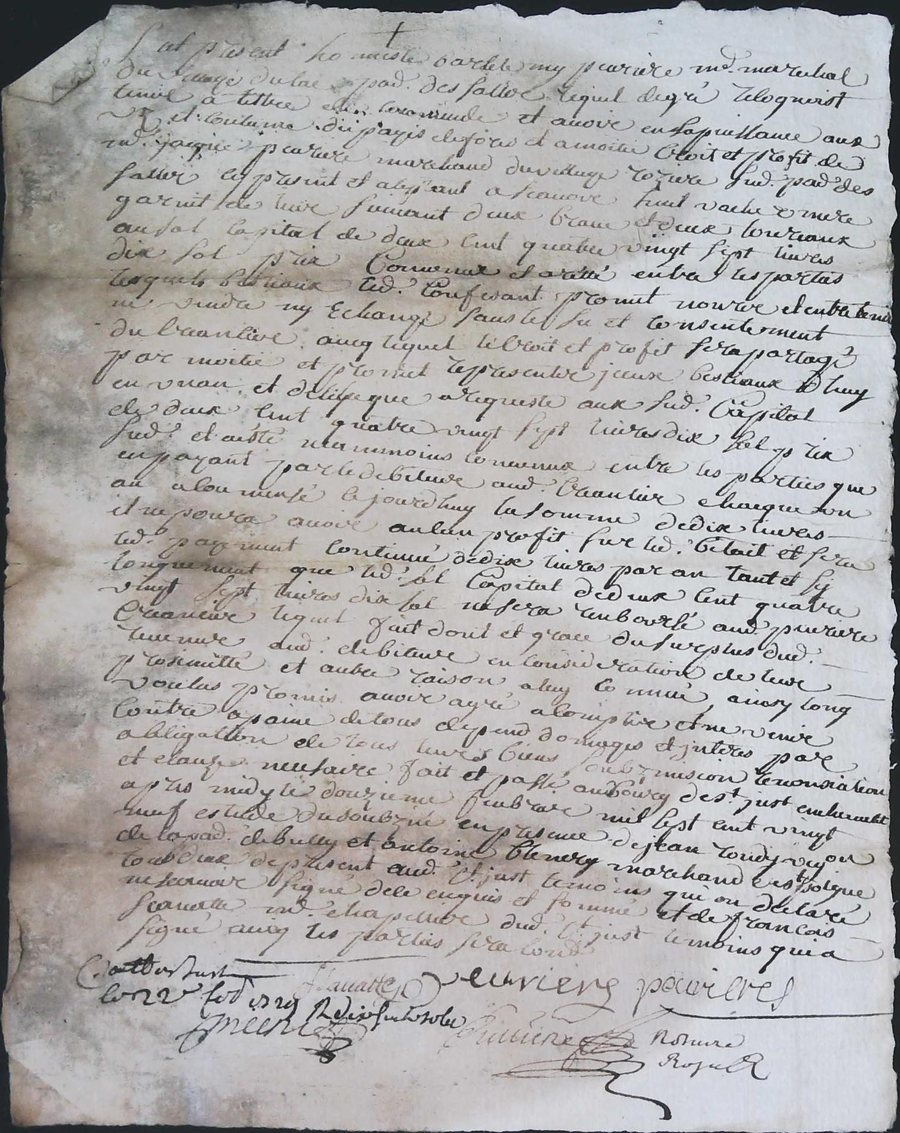 fut présent honneste barthelemy perriere md. marechal
du village du lac pad. des salles lequel de gré
tenir à tiltre de commande et avoir en sa puissance aux
et coutume du pays de fores et a moitié croit et profit de
md. jacque perriere marchand du village sud. pad. des
salles le present et aceptant a scavoir huit vache ou mere
garnit de leur suivant deux brave et deux toureaux
au sol capital de deux cent quatre vingt sept livres
dix sol prix convenue et arreté entre les parties
lesquels bestiaux led. confesant promit nourir et entretenir
ne vendre ny echangé sans le su et consentement
du creantier avec lequel le croit et profit sera partagé
par moitié et promet representer jceux bestiaux d'huy
en un an et delise que a requeste aux sud. Capital
de deux cent quatre vingt sept livres dix sol prix
sud. et aresté neammoins convenue entre les parties que
en payant par le debiteur aud. creantier chaque un
an a commensé ce jourdhuy la somme de dix livres
il ne poura avoir aulcun profit sur led. betail et sera
led. payement continué de dix livres par an tant et si
longuement que led. sol capital de deux cent quatre
vingt sept livres dix sol ne sera remboursé aud. perriere
creancier lequel fait dont et grace du surplus dud.
aud. debiteur en consideration de leur
proximitté et autre raison a luy connue ainsy long
voulus promis avoir agré acomplire et ne venir
contre a paine de tous depend domages et jnteres par
obligation de tous leurs biens soubzmission renonsiation
et clauze nessaire fait et passé au bourg de st. just en chevallet
apres midy le douzieme febvrier mil sept cent vingt
neuf estude du soubzné en presence de jean
de la pad. de bussy et antoine marchand
tous deux de present aud. st just temoins qui on declaré
ne scavoir signé de ce enquis et sommé et de francois
md. chapellier dud. st just temoins qui a
signé avec les parties
perriere perrieres
le 22e feb. 1729 R dix sols
Notaire
Royal